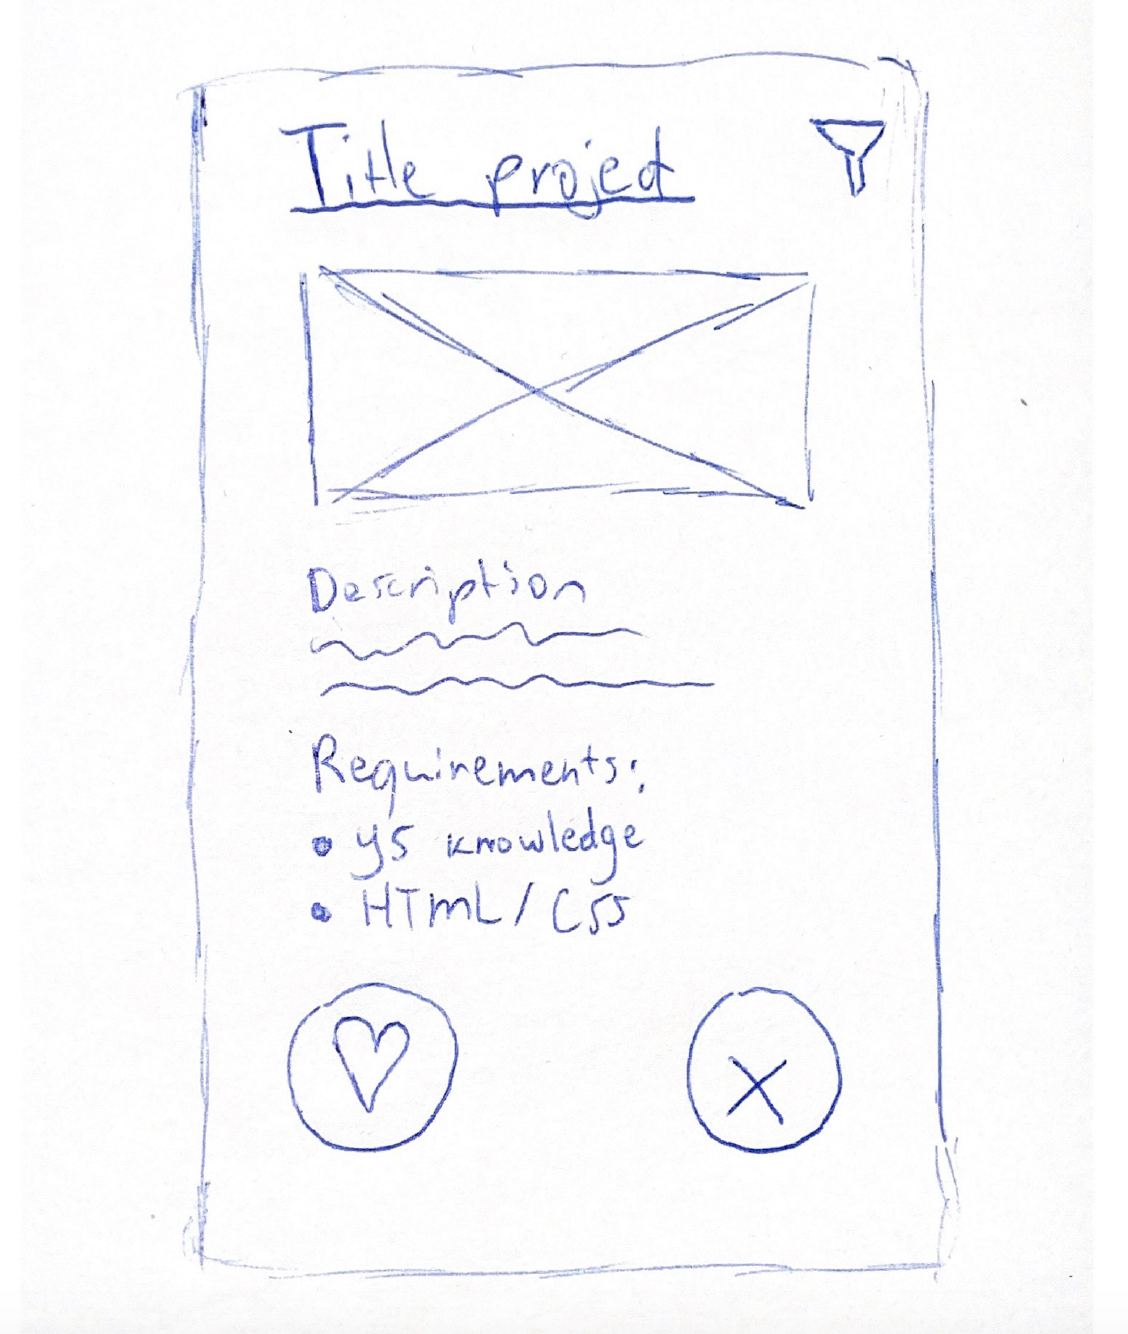 Title project
Description
Requirements:
• JS knowledge
• HTML/CSS